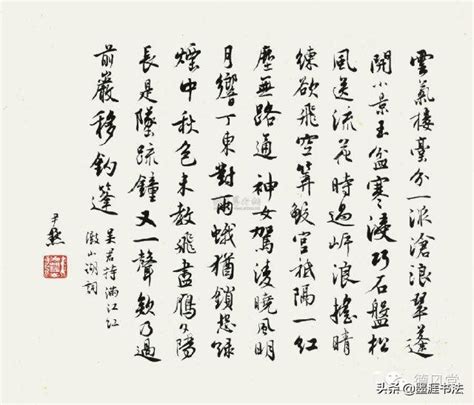 雲氣樓臺分一派滄浪翠蓬
開小景玉盆寒浸巧石盤松
風送流花時過岸浪搖晴
練欲飛空算鮫宮祗隔一紅
塵無路通神女駕淩曉風明
月響丁東對兩蛾猶鎖怨綠
煙中秋色未教飛盡雁夕陽
長是墜疏鐘又一聲欸乃過
前巖移釣篷
吳君特滿江紅
澱山湖詞
尹默
德风堂
头条@墨涯书法